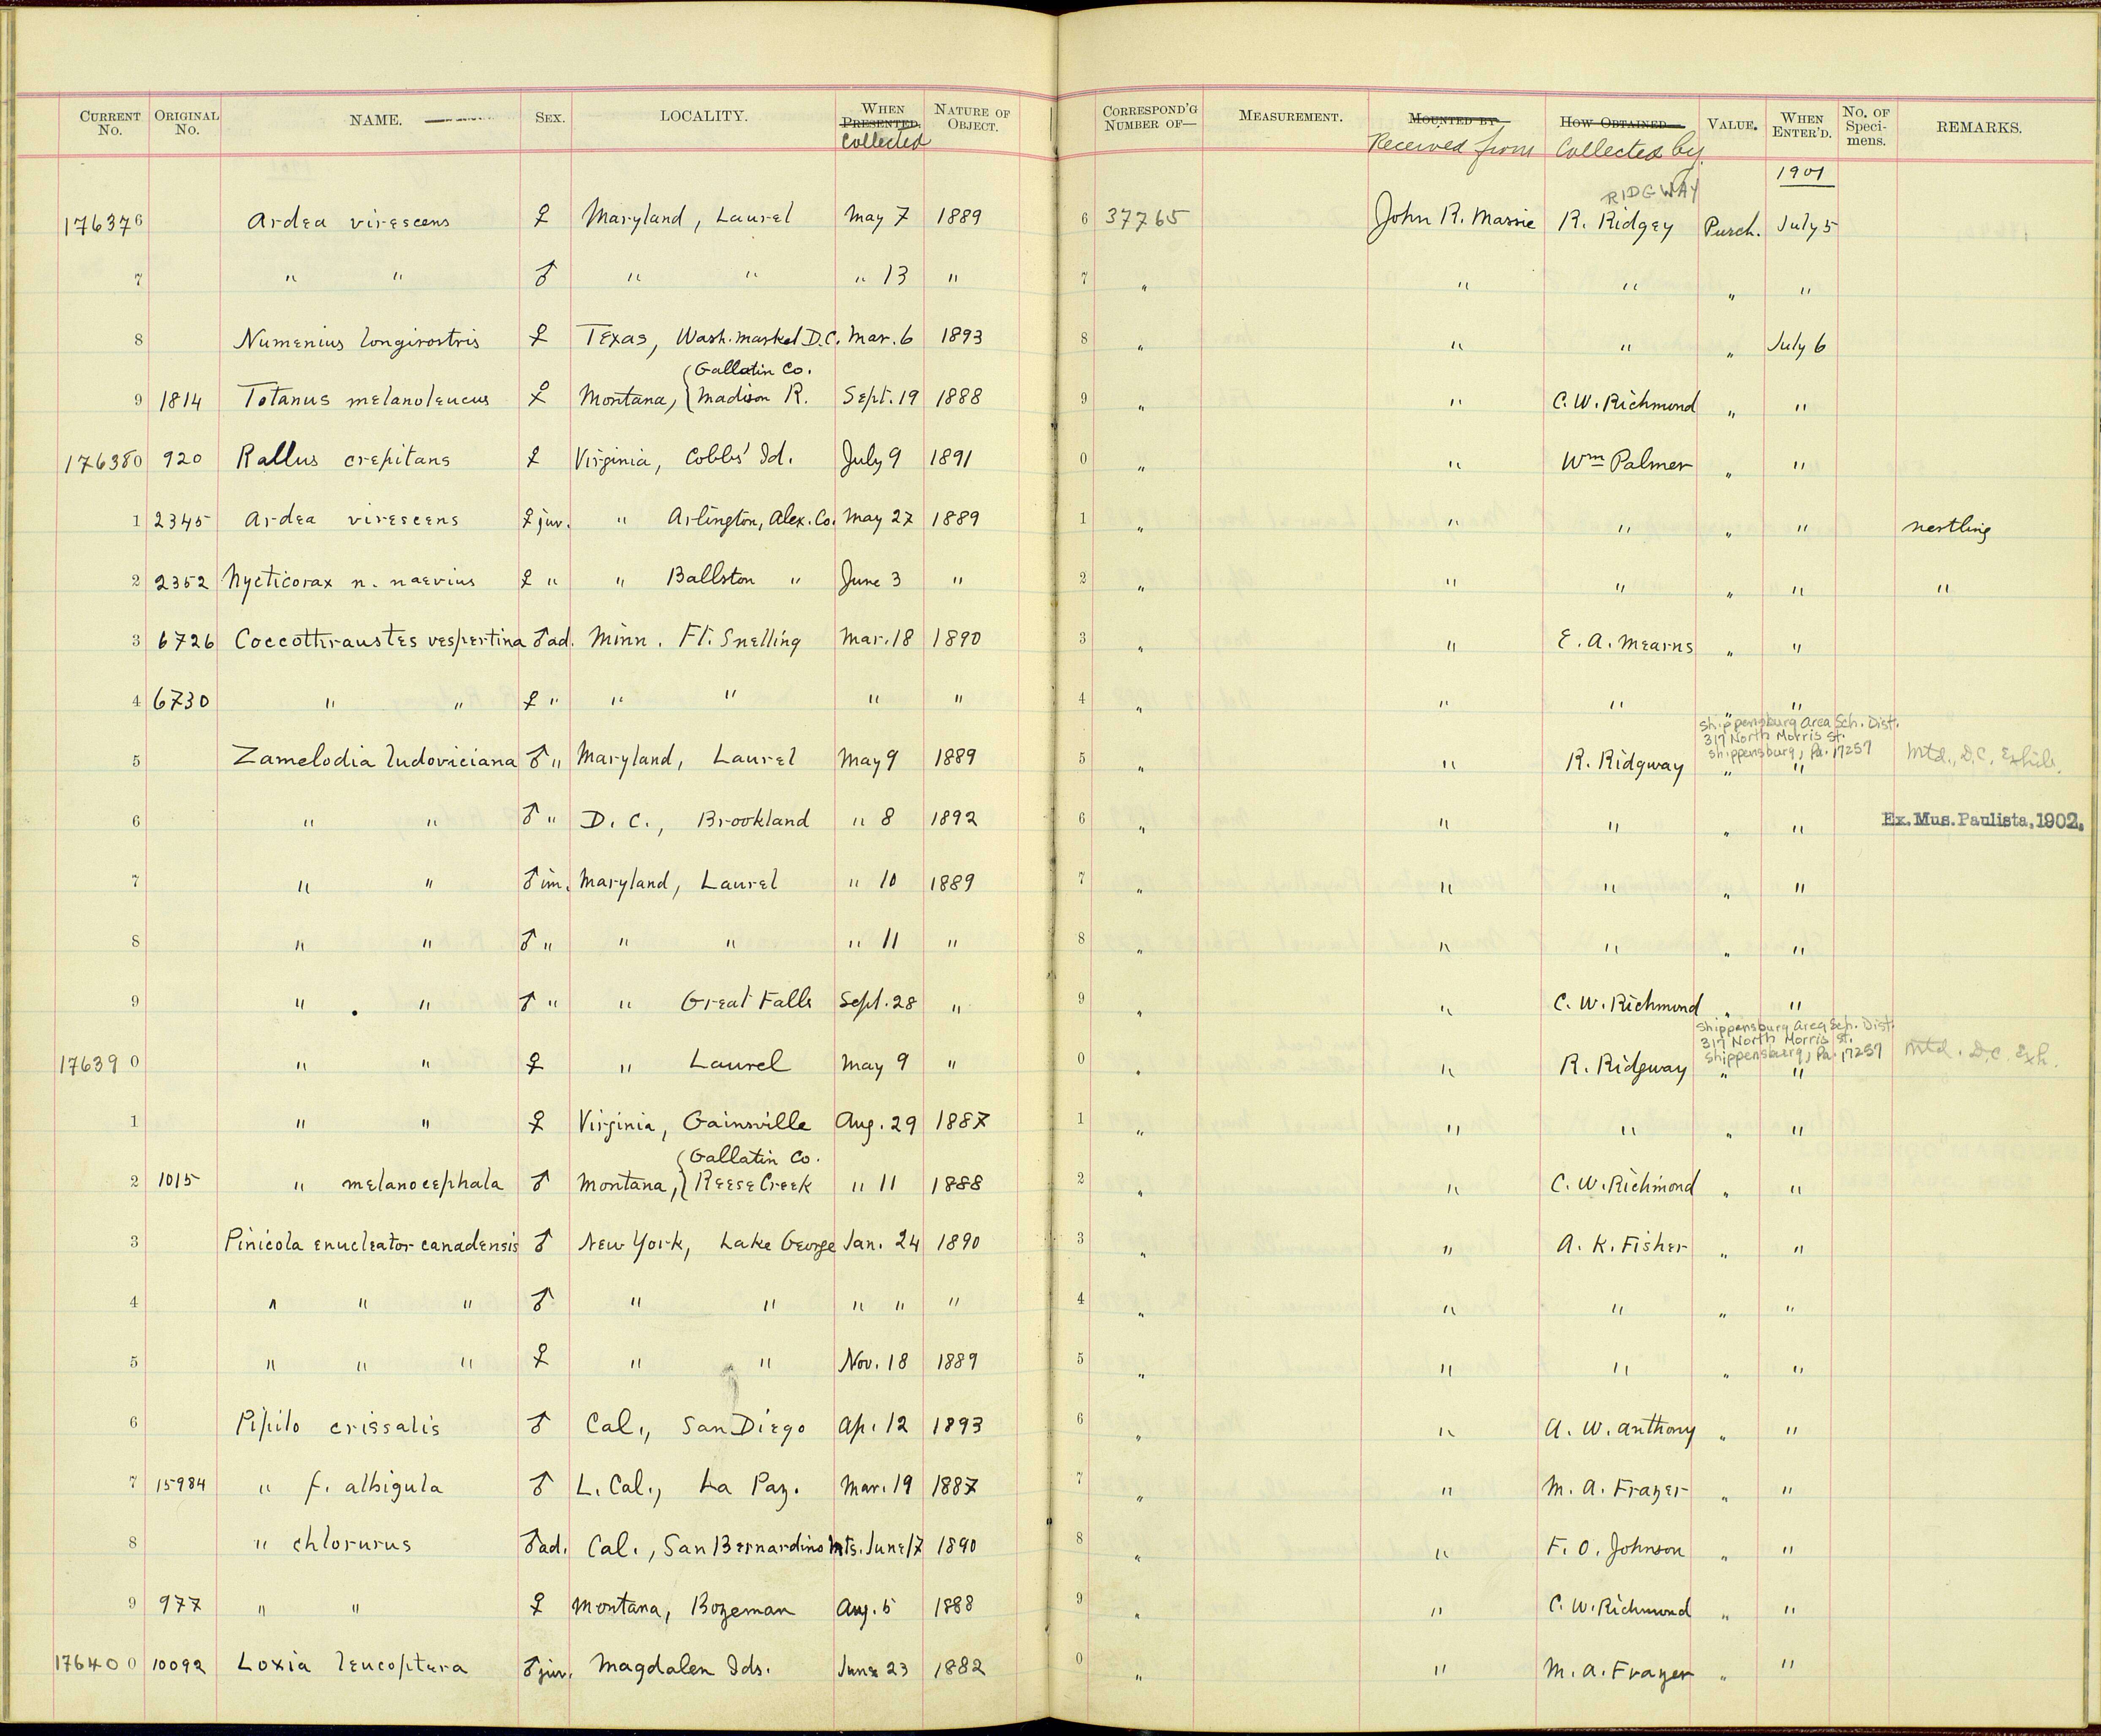 CURRENT No. ORIGINAL No. NAME. SEX. LOCALITY. WHEN PRESENTED. Collected NATURE OF OBJECT. CORRESPOND'G NUMBER OF— MEASUREMENT. MOUNTED BY Received from HOW OBTAINED Collected by VALUE. WHEN ENTER'D. No. OF Specimens. REMARKS.
RIDGWAY 1901
176376 Ardea virescens ♀ Maryland, Laurel May 7 1889 6 37765 John R. Massie R. Ridgey Purch. July 5
7 " " ♂ " " " 13 " 7 " " " " "
8 Numenius longirostris ♀ Texas, Wash. market D.C. Mar. 6 1893 8 " " " " July 6
Gallatin Co.
9 1814 Totanus melanoleucus ♀ Montana, { Madison R. Sept. 19 1888 9 " " C. W. Richmond " "
176380 920 Rallus crepitans ♀ Virginia, Cobbs' Id. July 9 1891 0 " " Wm Palmer " "
1 2345 Ardea virescens ♀ juv. " Arlington, Alex. Co. May 27 1889 1 " " " " " nestling
2 2352 Nycticorax n. naevius ♀ " " Ballston " June 3 " 2 " " " " " "
3 6726 Coccothraustes vespertina ♂ ad. Minn. Ft. Snelling Mar. 18 1890 3 " " E. A. Mearns " "
4 6730 " " ♀ " " " " " 4 " " " " "
Shippensburg Area Sch. Dist.
317 North Morris St.
Shippensburg, Pa. 17257
5 Zamelodia ludoviciana ♂ " Maryland, Laurel May 9 1889 5 " " R. Ridgway " " Mtd., D.C. Exhib.
6 " " ♂ " D. C., Brookland " 8 1892 6 " " " " " Ex. Mus. Paulista, 1902.
7 " " ♂ im. Maryland, Laurel " 10 1889 7 " " " " "
8 " " ♂ " " " " 11 " 8 " " " " "
9 " " ♂ " " Great Falls Sept. 28 " 9 " " C. W. Richmond " "
Shippensburg Area Sch. Dist.
317 North Morris St.
Shippensburg, Pa. 17257
176390 " " ♀ " Laurel May 9 " 0 " " R. Ridgway " " Mtd. D.C. Exh.
1 " " ♀ Virginia, Gainsville Aug. 29 1887 1 " " " " "
Gallatin Co.
2 1015 " melanocephala ♂ Montana, { Reese Creek " 11 1888 2 " " C. W. Richmond " "
3 Pinicola enucleator canadensis ♂ New York, Lake George Jan. 24 1890 3 " " A. K. Fisher " "
4 " " " ♂ " " " " " 4 " " " " "
5 " " " ♀ " " Nov. 18 1889 5 " " " " "
6 Pipilo crissalis ♂ Cal., San Diego Ap. 12 1893 6 " " A. W. Anthony " "
7 15984 " f. albigula ♂ L. Cal., La Paz. Mar. 19 1887 7 " " M. A. Frazer " "
8 " chlorurus ♂ ad. Cal., San Bernardino Mts. June 17 1890 8 " " F. O. Johnson " "
9 977 " " ♀ Montana, Bozeman Aug. 5 1888 9 " " C. W. Richmond " "
176400 10092 Loxia leucoptera ♂ juv. Magdalen Ids. June 23 1882 0 " " M. A. Frazer " "